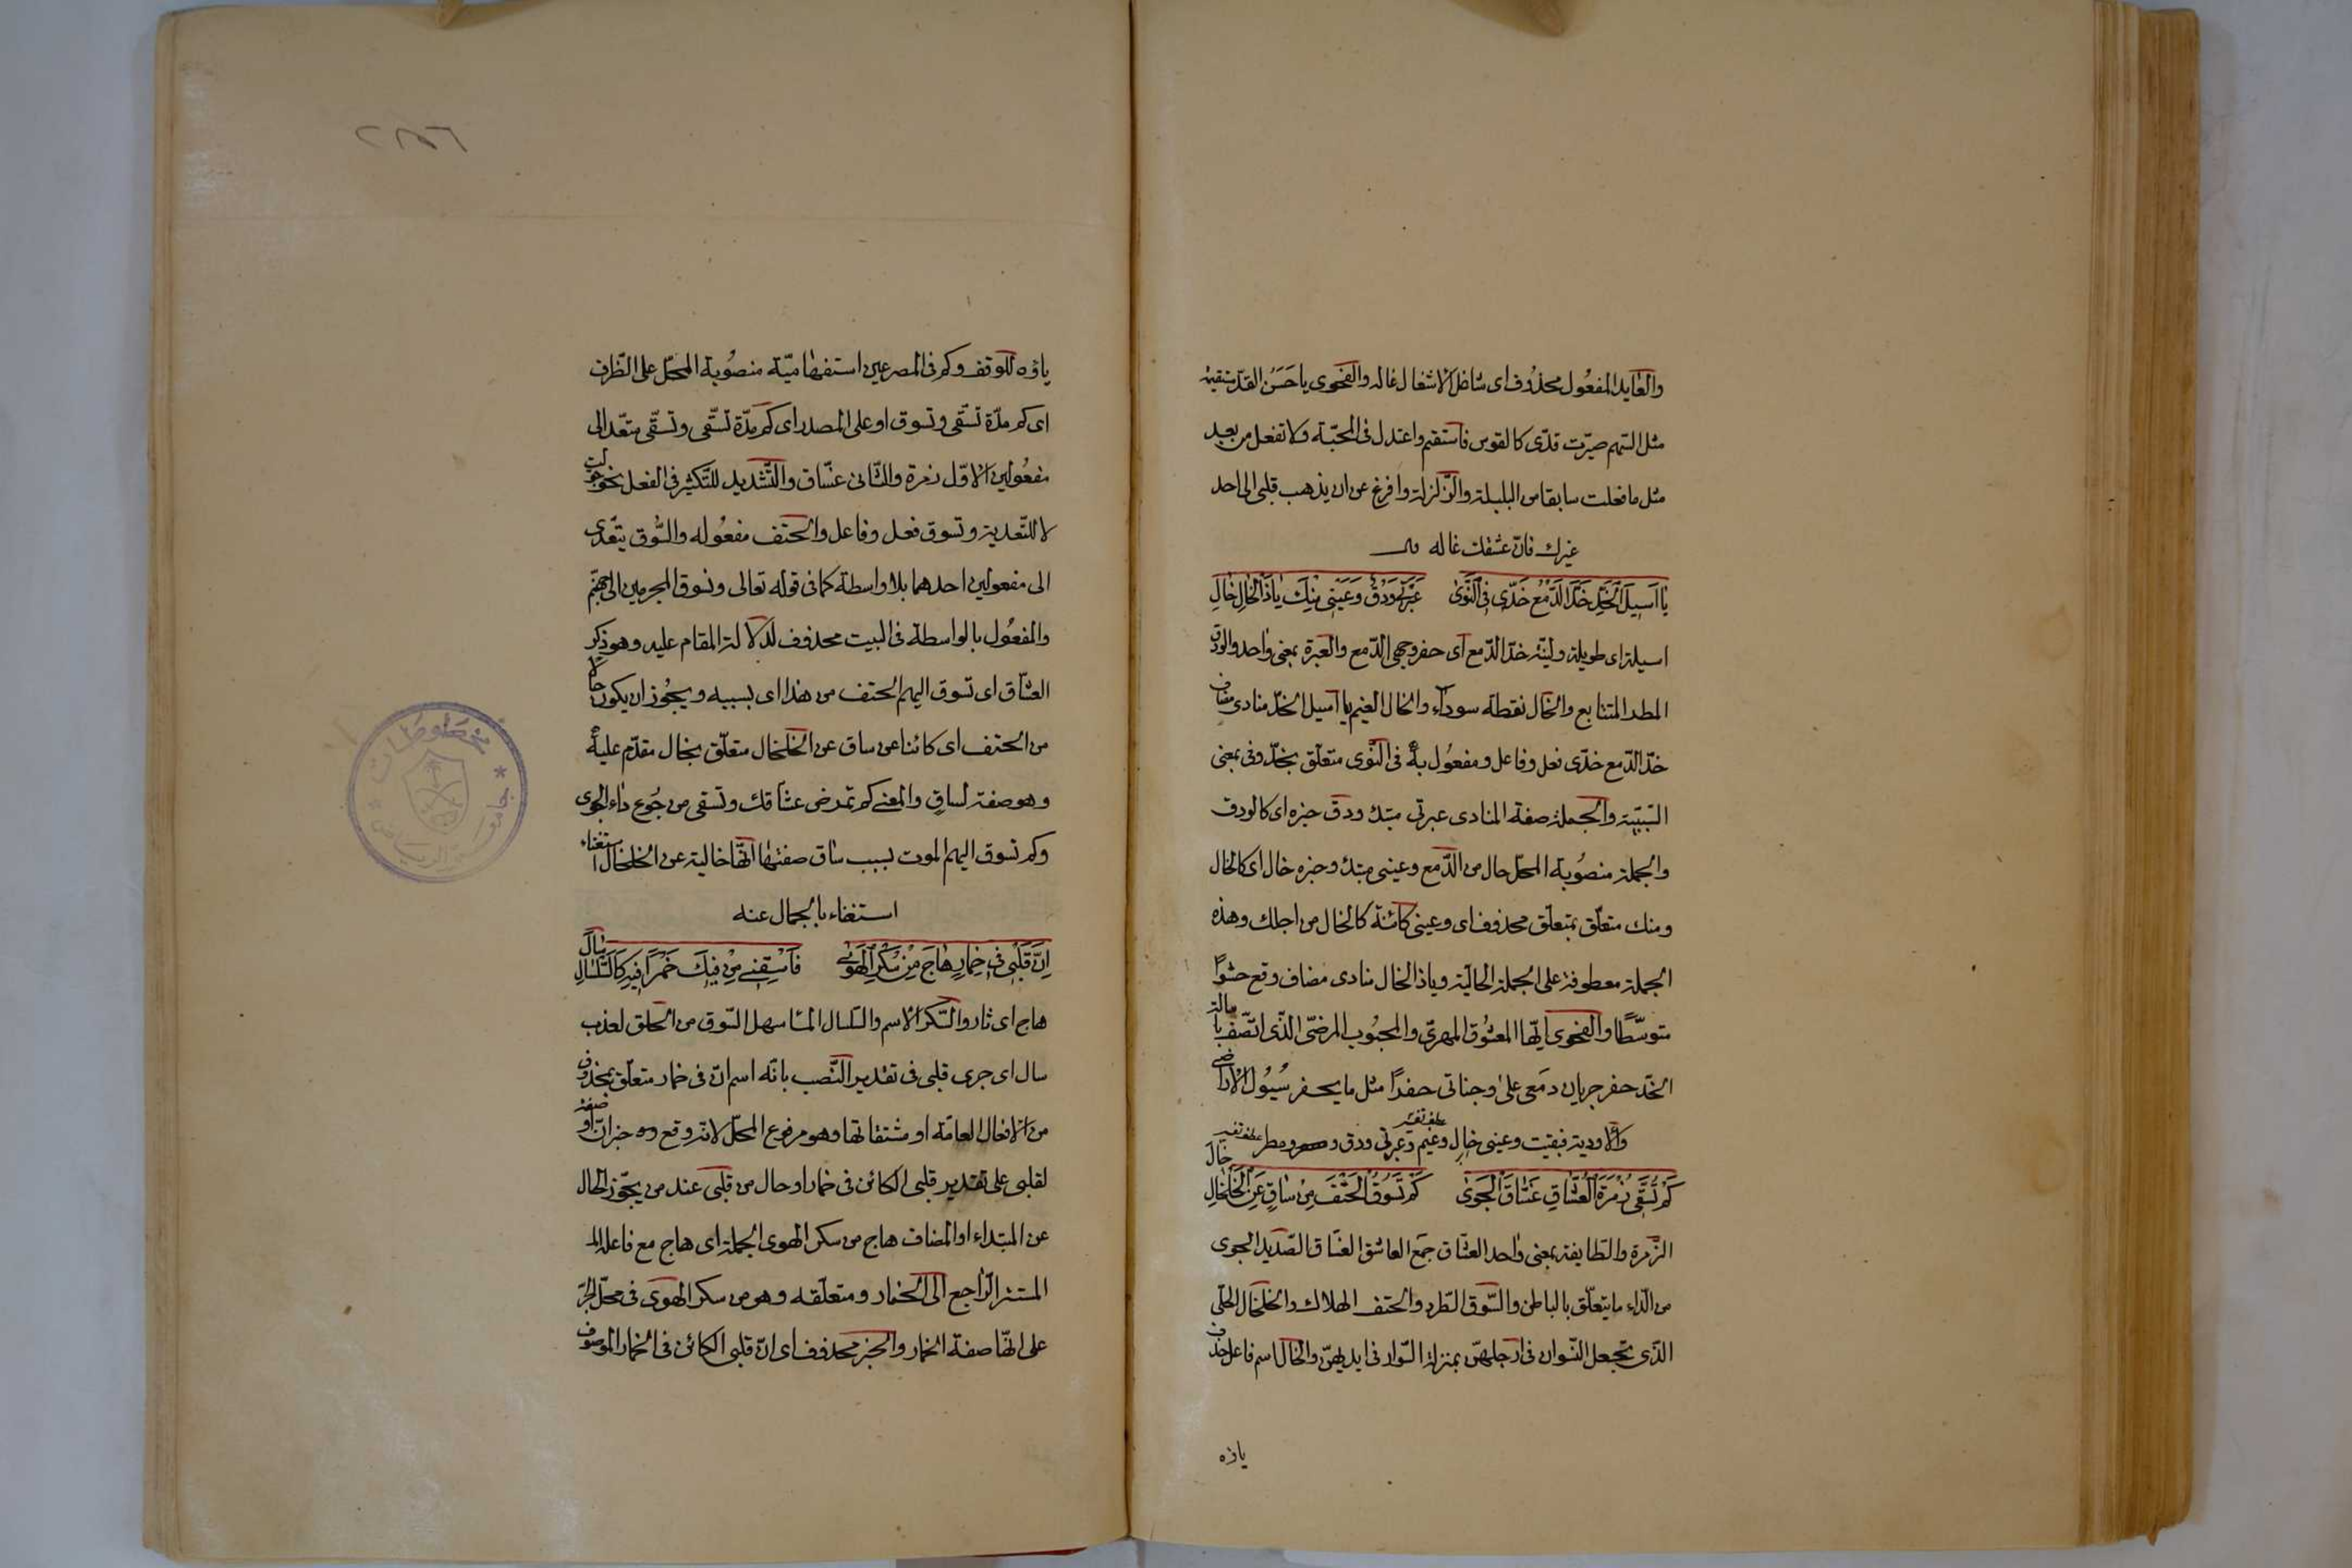 والعايد المفعول محذوف اى شاغل الاشغال غاله والفحوى يا حسن القد مستقيمة
مثل السّهم صيّرت قدّى كالقوس فاستقم واعتدل فى المحبّة ولا تفعل من بعيد
مثل ما فعلت سابقا من البلبلة والزّلزلة وافرغ عن ان يذهب قلبى الى احد
غيرك فان عشقك غاله
يا اَسِيلَ الْخَدِّ خَدَّ الدَّمْعُ خَدّى فى النَّوى عَبْرَتى وَدْقٌ وَعَيْنى مِنْكَ يا ذَا الْخالِ خالِ
اسيلة اى طويلة وليّنة خدّ الدّمع اى حفر وجهى الدّمع والعبرة بمعنى واحد والودق
المطر المتتابع والخال نقطة سوداء والخال الغيم يا اسيل الخدّ منادى مضاف
خدّ الدّمع خدّى فعل وفاعل ومفعول به فى النّوى متعلّق بخدّ وفى بمعنى
السّببيّة والجملة صفة المنادى عبرتى مبتدء ودق خبره اى كالودق
والجملة منصوبة المحلّ حال من الدّمع وعينى مبتدء وخبره خال اى كالخال
ومنك متعلّق بمتعلّق محذوف اى وعينى كائنة كالخال من اجلك وهذه
الجملة معطوفة على الجملة الحاليّة ويا ذا الخال منادى مضاف وقع حشوًا
متوسّطًا والفحوى ايّها المعشوق المهرىّ والمحبوب المرضىّ الّذى اتّصف باسالة
الخدّ حفر جريان دمعى على وجناتى حفرًا مثل ما يحفر سُيُول الاراضى
والاودية فبقيت وعينى خال وغيم عطف تفسير وعبرتى ودق ومطر عطف تفسير
كَمْ تُسَقّى زُمْرَةَ الْعُشّاقِ غَسّاقَ الْجَوى كَمْ تَسُوقُ الْحَتْفَ مِنْ ساقٍ عَنِ الْخَلْخالِ خالِ
الزّمرة والطّايفة بمعنى واحد العشّاق جمع العاشق الغسّاق الصّديد الجوى
من الدّاء ما يتعلّق بالباطن والسّوق الطّرد والحتف الهلاك والخلخال الحلّى
الّذى تجعل النّسوان فى ارجلهنّ بمنزلة السّوار فى ايديهنّ والخال اسم فاعل حذف
ياؤه
ياؤه للوقف وكم فى المصرعين استفهاميّة منصوبة المحلّ على الظّرف
اى كم مدّة تسقّى وتسوق او على المصدر اى كم مدّة تسقّى وتسقّى متعدّ الى
مفعولين الاوّل زمرة والثّانى غسّاق والتّشديد للتّكثير فى الفعل نحو جوّلت
لا للتّعدية وتسوق فعل وفاعل والحتف مفعوله والسُّوق يتعدّى
الى مفعولين احدهما بلا واسطة كما فى قوله تعالى ونسوق المجرمين الى جهنّم
والمفعول بالواسطة فى البيت محذوف لدلالة المقام عليه وهو ذكر
العشّاق اى تسوق اليهم الحتف من هذا اى بسببه ويجوز ان يكون حالا
من الحتف اى كائنا عن ساق عن الخلخال متعلّق بخال مقدّم عليه
وهو صفة لساقٍ والمعنى كم تمرض عشّاقك وتسقى من جُوع داء الجوى
وكم تسوق اليهم الموت بسبب ساق صفتها انّها خالية عن الخلخال استغناء
استغناء بالجمال عنه
اِنَّ قَلْبى فى خِمارٍ هاجَ مِنْ سُكْرِ الْهَوى فَاسْقِنى مِنْ فيكَ خَمْرًا فيهِ كَالسَّلْسالِ سالَ
هاج اى ثار والسّكر الاسم والسّلسال الماء سهل السّوق من الحلق لعذب
سال اى جرى قلبى فى تقدير النّصب بانّه اسم انّ فى خمار متعلّق بمحذوف
من الافعال العامّة او مشتقاتها وهو مرفوع المحلّ لانّه وقع خبر انّ او صفة
لقلبى على تقدير قلبى الكائن فى خمار او حال من قلبى عند من يجوّز الحال
عن المبتداء او المضاف هاج من سكر الهوى الجملة اى هاج مع فاعله
المستتر الرّاجع الى الخمار ومتعلّقه وهو من سكر الهوى فى محلّ الجرّ
على انّها صفة الخمار والخبر محذوف اى انّ قلبى الكائن فى الخمار الموصوف
مخطوطات
جامعة الرياض